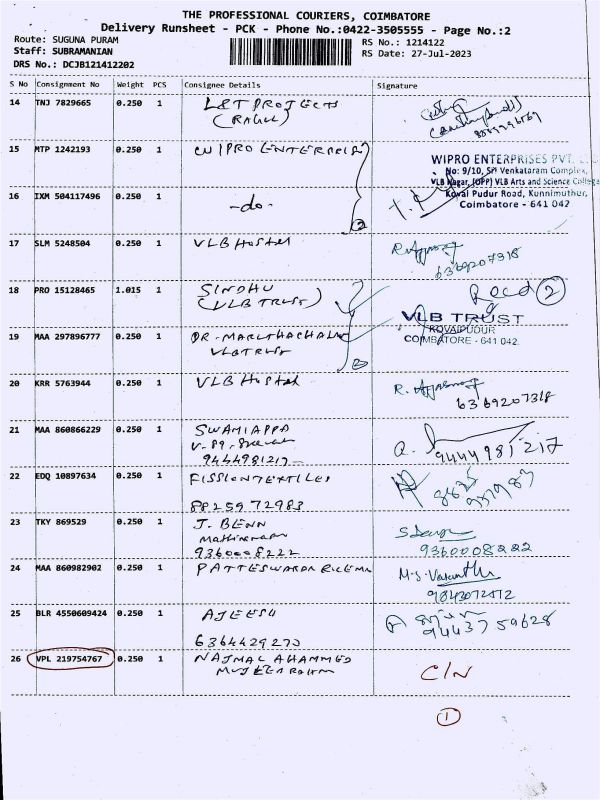 THE PROFESSIONAL COURIERS, COIMBATORE
Delivery Runsheet - PCK - Phone No.:0422-3505555 - Page No.:2
Route: SUGUNA PURAM
Staff: SUBRAMANIAN
DRS No.: DCJB121412202
RS No.: 1214122
RS Date: 27-Jul-2023
S No Consignment No Weight PCS Consignee Details Signature
14 TNJ 7829665 0.250 1 L&T PROJECTS
(RAHUL)
15 MTP 1242193 0.250 1 WIPRO ENTERPRISES
WIPRO ENTERPRISES PVT.
No: 9/10, Sri Venkataram Complex,
VLB Nagar, (OPP) VLB Arts and Science College
Kovai Pudur Road, Kunnimuthur,
Coimbatore - 641 042
16 IXM 504117496 0.250 1 -do-
2
17 SLM 5248504 0.250 1 VLB Hostel
6369207318
18 PRO 15128465 1.015 1 SINDHU
(VLB TRUST)
Recd 2
VLB TRUST
KOVAIPUDUR
COIMBATORE - 641 042.
19 MAA 297896777 0.250 1 DR. MARUTHACHALAM
VLB TRUST
2
20 KRR 5763944 0.250 1 VLB Hostel
6369207318
21 MAA 860866229 0.250 1 SWAMIAPPA
V-89,
9444981217
9444981217
22 EDQ 10897634 0.250 1 FISSION TEXTILES
8825972983
23 TKY 869529 0.250 1 J. BENN
9360008222
9360008222
24 MAA 860982902 0.250 1
M.S. Vasanthi
9843072512
25 BLR 4550609424 0.250 1 AJEESH
6364429270
9443759628
26 VPL 219754767 0.250 1 NAJMAL AHAMMED
C/N
1